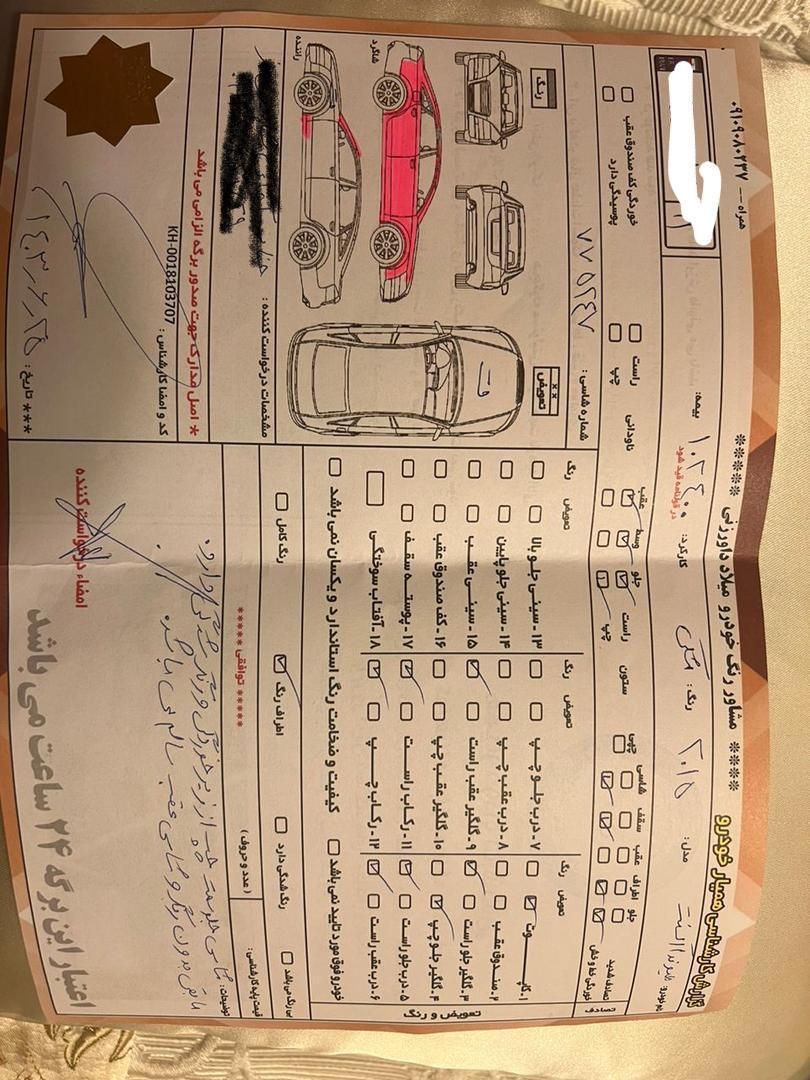 گزارش کارشناسی همیار خودرو
**** مشاور رنگ خودرو میلاد داورزنی *****
همراه --- ۰۹۱۰۹۰۸۰۲۳۷
نام خودرو:
مدل: ۲۰۱۵
رنگ: مشکی
کارکرد: ۱۰۲۴۰۰
در قولنامه قید شود
بیمه:
تصادف
تصادف شدید
خوردگی خط و خش
جلو
اطراف
عقب
سقف
شاسی
چپی
ستون
راست
چپ
جلو
وسط
عقب
ناودانی
راست
چپ
خوردگی کف صندوق عقب
پوسیدگی دارد
تعویض و رنگ
تعویض
رنگ
۱- کاپوت
۲- صندوق عقب
۳- گلگیر جلو راست
۴- گلگیر جلو چپ
۵- درب جلو راست
۶- درب عقب راست
تعویض
رنگ
۷- درب جلو چپ
۸- درب عقب چپ
۹- گلگیر عقب راست
۱۰- گلگیر عقب چپ
۱۱- رکاب راست
۱۲- رکاب چپ
تعویض
رنگ
۱۳- سینی جلو بالا
۱۴- سینی جلو پایین
۱۵- سینی عقب
۱۶- کف صندوق عقب
۱۷- پوسته سقف
۱۸- آفتاب سوختگی
شماره شاسی: ۷۷۵۲۴۷
رنگ
××
تعویض
ت
شاگرد
راننده
خودرو فوق مورد تایید نمی باشد
کیفیت و ضخامت رنگ استاندارد و یکسان نمی باشد
بی رنگ می باشد
رنگ شدگی دارد
اطراف رنگ
رنگ کامل
قیمت پایه کارشناسی:
(عدد و حروف)
***** توافقی *****
توضیحات:
مشخصات درخواست کننده:
* اصل مدارک جهت صدور برگه الزامی می باشد
کد و امضا کارشناس:
KH-0018103707
*** تاریخ: ۱۴۰۳،۶،۲۵
امضاء درخواست کننده
اعتبار این برگه ۲۴ ساعت می باشد